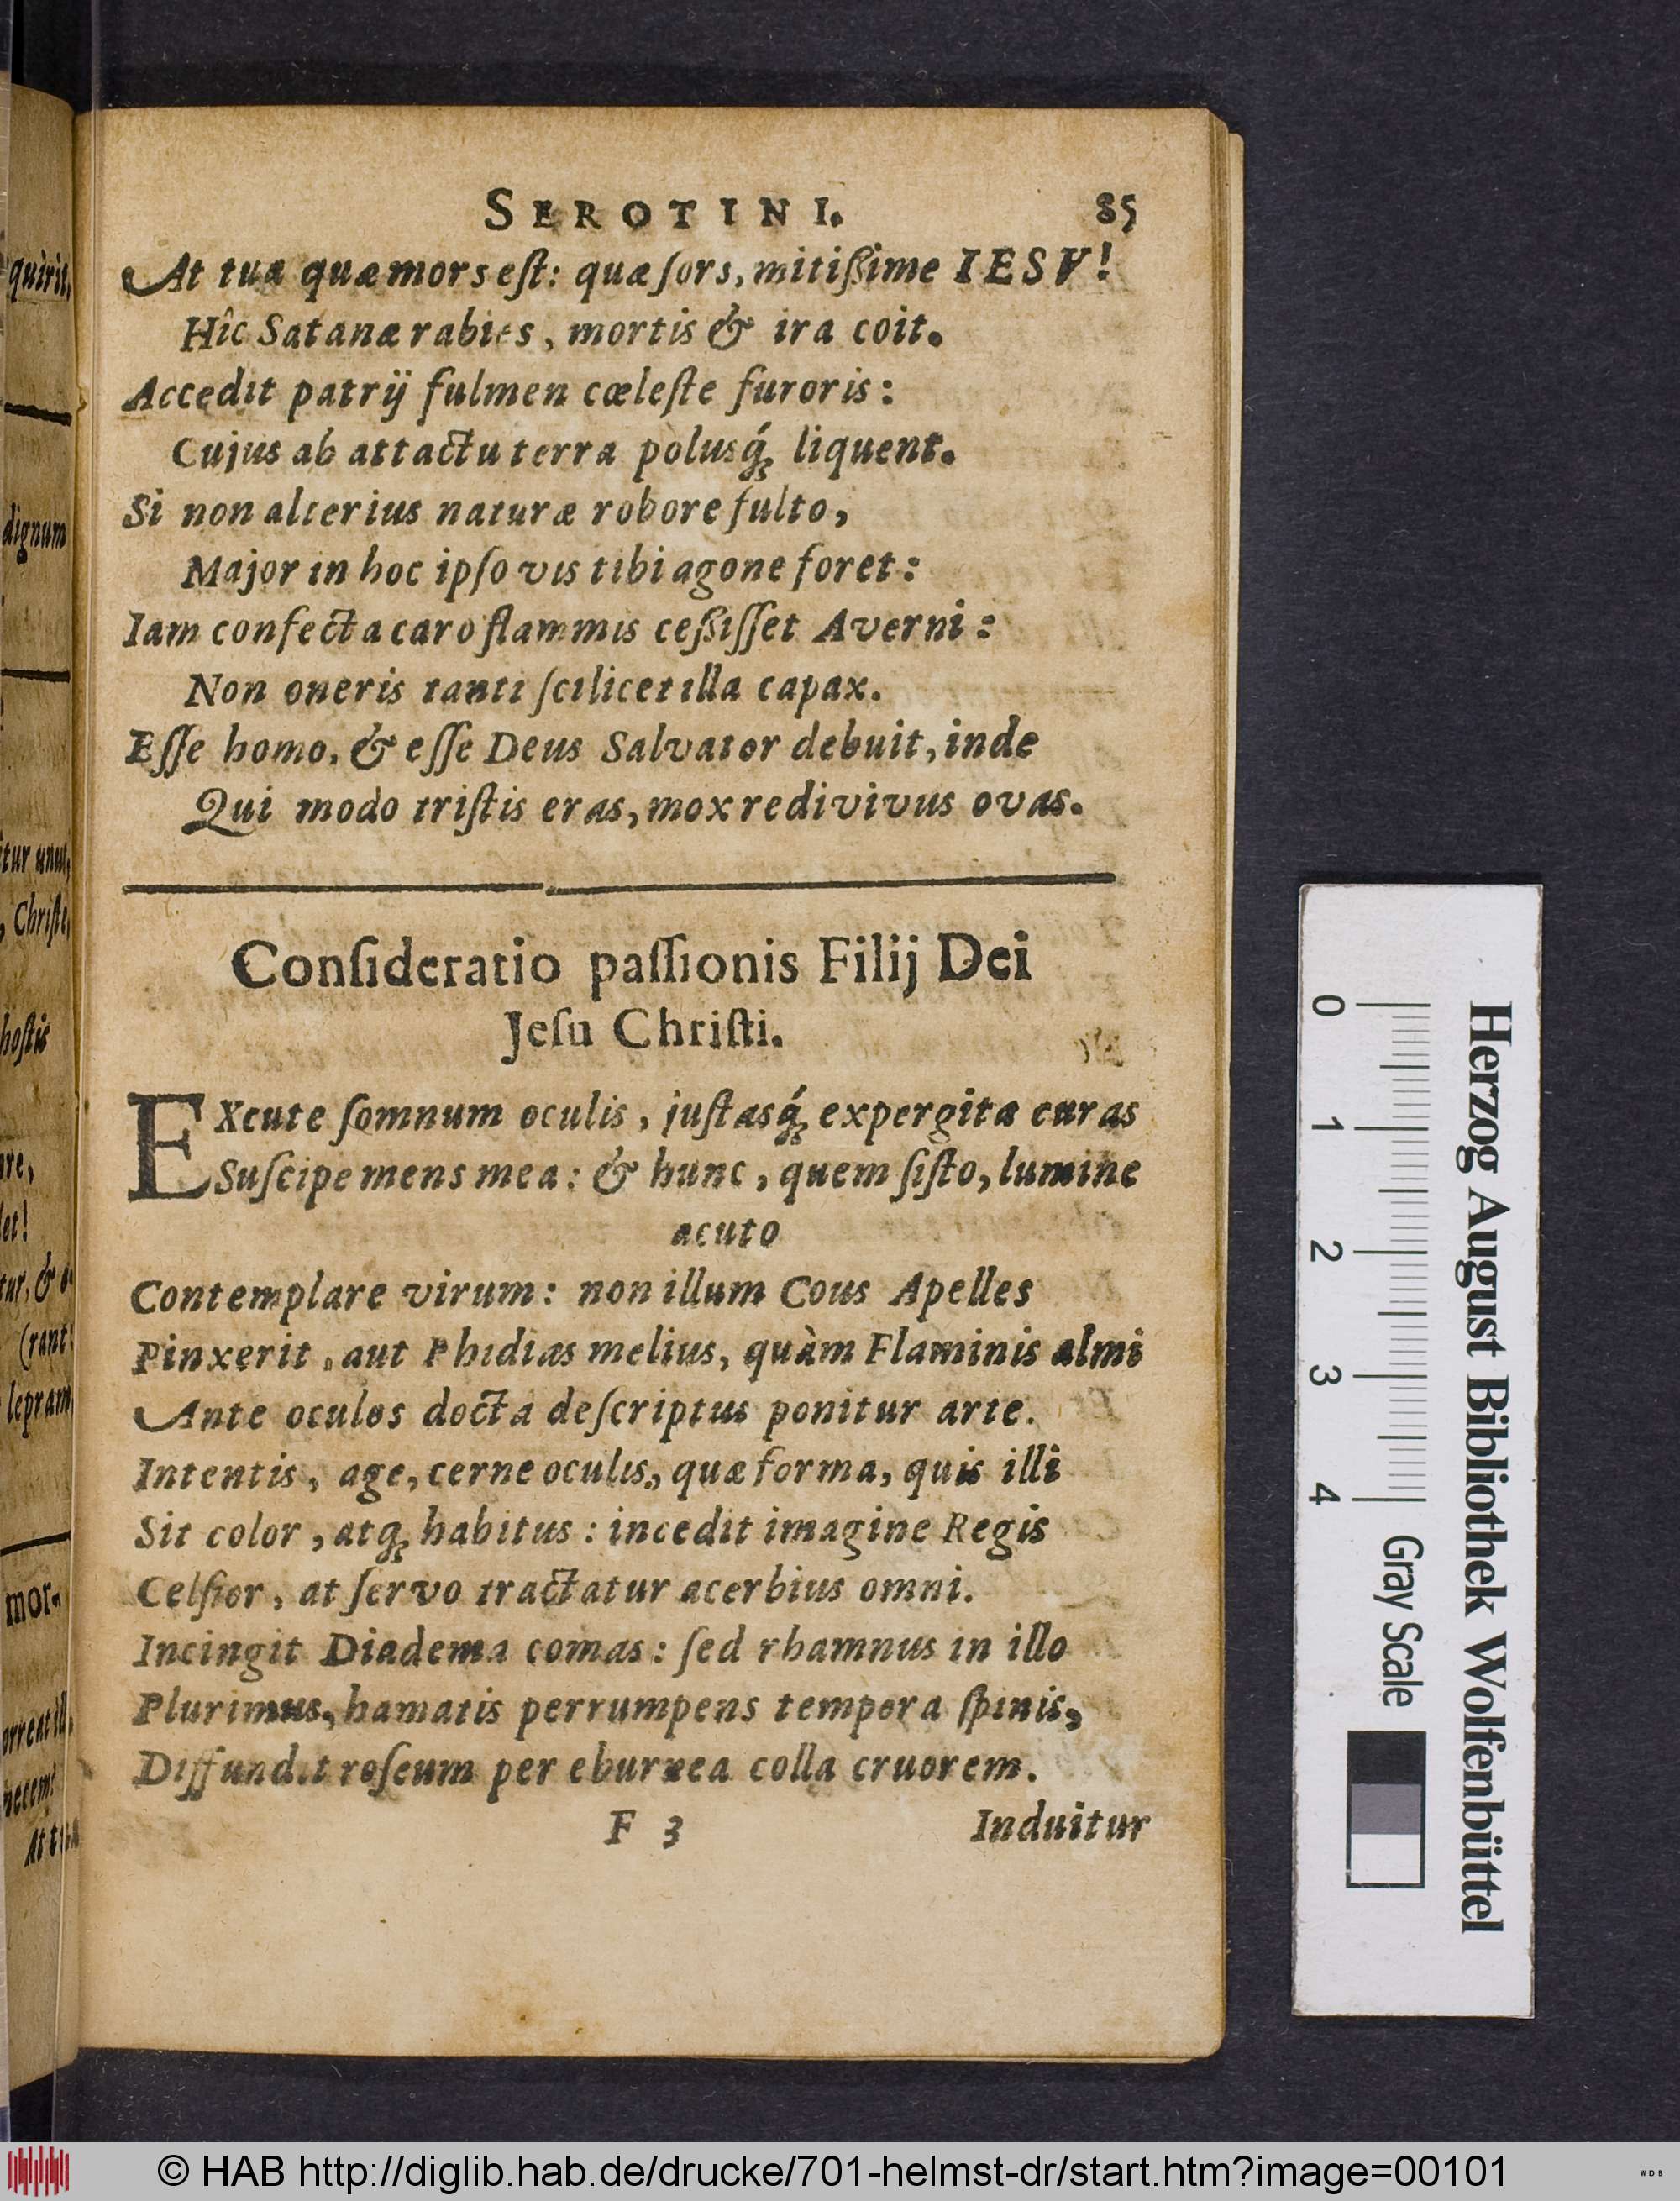 SEROTINI. 85
At tua quæ mors est: quæ sors, mitißime IESV!
Hîc Satanæ rabies, mortis & ira coit.
Accedit patrij fulmen cœleste furoris:
Cujus ab attactu terra polusq́; liquent.
Si non alterius naturæ robore fulto,
Major in hoc ipso vis tibi agone foret:
Iam confecta caro flammis ceßisset Averni:
Non oneris tanti scilicet illa capax.
Esse homo, & esse Deus Salvator debuit, inde
Qui modo tristis eras, mox redivivus ovas.
Consideratio passionis Filij Dei
Jesu Christi.
EXcute somnum oculis, justasq́; expergita curas
Suscipe mens mea: & hunc, quem sisto, lumine
acuto
Contemplare virum: non illum Cous Apelles
Pinxerit, aut Phidias melius, quàm Flaminis almi
Ante oculos docta descriptus ponitur arte.
Intentis, age, cerne oculis, quæ forma, quis illi
Sit color, atq; habitus: incedit imagine Regis
Celsior, at servo tractatur acerbius omni.
Incingit Diadema comas: sed rhamnus in illo
Plurimus, hamatis perrumpens tempora spinis,
Diffundit roseum per eburnea colla cruorem.
F 3 Induitur
quirit,
dignum
itur unus,
, Christe,
hostis
are,
let!
tur, & o-
(rant:
lepram
mor-
necem?
At tua
0 1 2 3 4 Gray Scale
Herzog August Bibliothek Wolfenbüttel
© HAB http://diglib.hab.de/drucke/701-helmst-dr/start.htm?image=00101
WDB